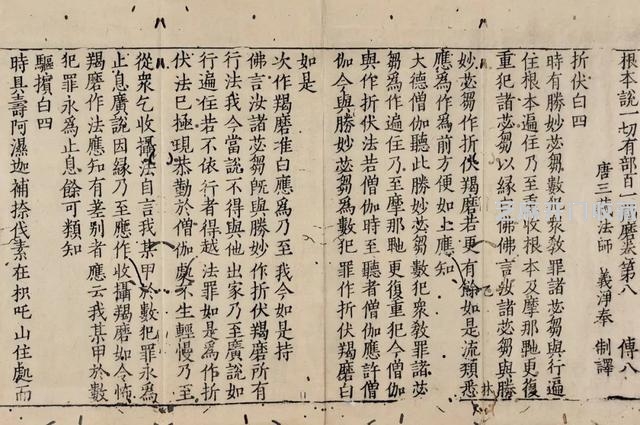 根本說一切有部百一羯磨卷第八 傳八
唐三藏法師 義淨奉 制譯
折伏白四
時有勝妙苾芻數犯眾教罪諸苾芻與行遍
住根本遍住乃至重收根本及摩那䭾更復
重犯諸苾芻以緣白佛佛言汝諸苾芻與勝
妙苾芻作折伏羯磨若更有餘如是流類悉
應為作為前方便如上應知
大德僧伽聽此勝妙苾芻數犯眾教罪諸苾
芻為作遍住乃至摩那䭾更復重犯今僧伽
與作折伏法若僧伽時至聽者僧伽應許僧
伽今與勝妙苾芻為數犯眾教罪作折伏羯磨白
如是
次作羯磨准白應為乃至我今如是持
佛言汝諸苾芻既與勝妙作折伏羯磨所有
行法我今當說不得與他出家乃至廣說如
行遍住若不依行者得越法罪如是為作折
伏法已極現恭勤於僧伽處不生輕慢乃至
從眾乞收攝法自言我某甲於數犯罪永為
止息廣說因緣乃至應作收攝羯磨如令怖
羯磨作法應知有差別者應云我某甲於數
犯罪永為止息餘可類知
驅擯白四
時具壽阿濕迦補捺伐素在枳吒山住處而
林